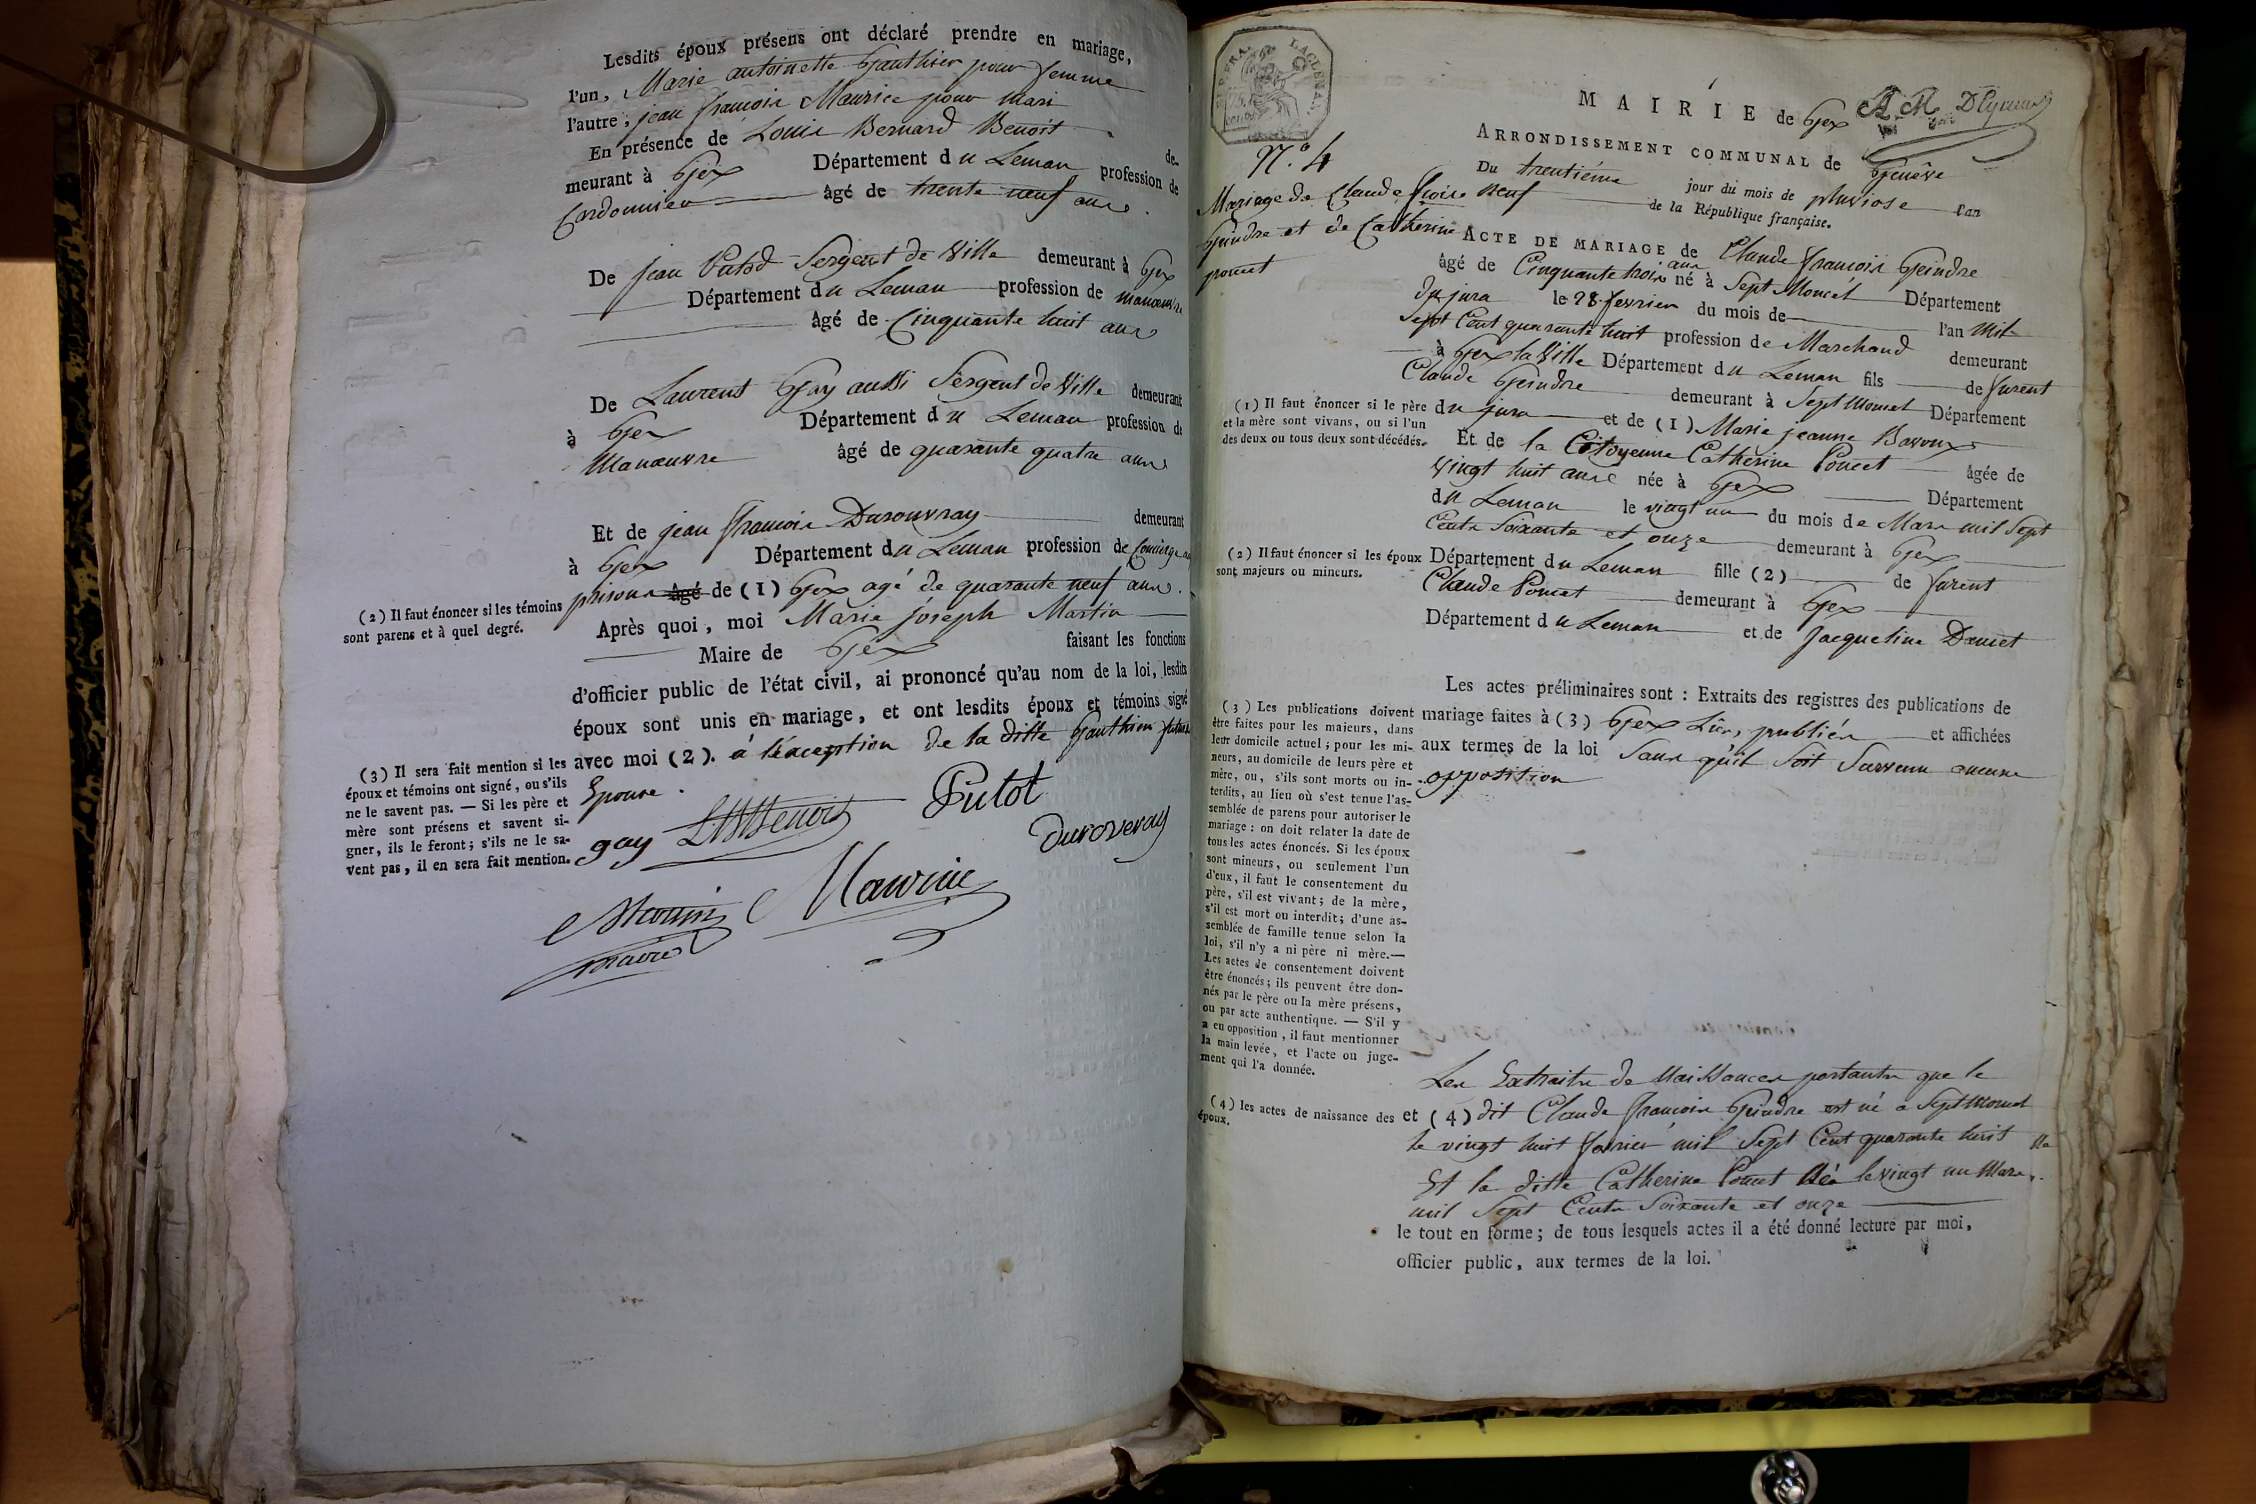 Lesdits époux présens ont déclaré prendre en mariage,
l'un, Marie antoinette Gauthier pour femme
l'autre, jean françois Maurice pour mari
En présence de Louis Bernard Benoit de-
meurant à Gex Département du Leman profession de
Cordonnier âgé de trente neuf ans.
De jean Putod Sergent de Ville demeurant à Gex
Département du Leman profession de manoeuvre
âgé de Cinquante huit ans
De Laurent Gay aussi Sergent de Ville demeurant
à Gex Département du Leman profession de
Manœuvre âgé de quarante quatre ans
Et de jean françois Durouvray demeurant
à Gex Département du Leman profession de Concierge au
prisons âgé de (1) Gex agé de quarante neuf ans.
(2) Il faut énoncer si les témoins
sont parens et à quel degré.
Après quoi, moi Marie joseph Martin
Maire de Gex faisant les fonctions
d'officier public de l'état civil, ai prononcé qu'au nom de la loi, lesdits
époux sont unis en mariage, et ont lesdits époux et témoins signé
avec moi (2). à l'éxception de la ditte Gauthier future
Epouse.
(3) Il sera fait mention si les
époux et témoins ont signé, ou s'ils
ne le savent pas. — Si les père et
mère sont présens et savent si-
gner, ils le feront; s'ils ne le sa-
vent pas, il en sera fait mention.
gay LBBenoit Putot
duroveray
Martin Maurice
maire
N.º 4
Mariage de Claude fçois
Geindre et de Catherine
poncet
MAIRIE de Gex
ARRONDISSEMENT COMMUNAL de Genève
Du trentième jour du mois de pluviose l'an
neuf de la République française.
ACTE DE MARIAGE de Claude françois Geindre
âgé de Cinquante trois ans né à Sept Moncel Département
du jura le 28 fevrier du mois de l'an Mil
Sept Cent quarante huit profession de Marchand demeurant
à Gex la Ville Département du Leman fils de furent
Claude Geindre demeurant à Sept Moncel Département
du jura et de (1) Marie jeanne Baroux
(1) Il faut énoncer si le père
et la mère sont vivans, ou si l'un
des deux ou tous deux sont décédés.
Et de la Citoyenne Catherine Poncet âgée de
Vingt huit ans née à Gex Département
du Leman le vingt un du mois de Mars mil Sept
Cents Soixante et onze demeurant à Gex
Département du Leman fille (2) de furent
Claude Poncet demeurant à Gex
Département du Leman et de Jacqueline
(2) Il faut énoncer si les époux
sont majeurs ou mineurs.
Les actes préliminaires sont : Extraits des registres des publications de
mariage faites à (3) Gex Lües, publiées et affichées
aux termes de la loi Sans qu'il Soit Survenu aucune
opposition
(3) Les publications doivent
être faites pour les majeurs, dans
leur domicile actuel; pour les mi-
neurs, au domicile de leurs père et
mère, ou, s'ils sont morts ou in-
terdits, au lieu où s'est tenue l'as-
semblée de parens pour autoriser le
mariage : on doit relater la date de
tous les actes énoncés. Si les époux
sont mineurs, ou seulement l'un
d'eux, il faut le consentement du
père, s'il est vivant; de la mère,
s'il est mort ou interdit; d'une as-
semblée de famille tenue selon la
loi, s'il n'y a ni père ni mère.—
Les actes de consentement doivent
être énoncés; ils peuvent être don-
nés par le père ou la mère présens,
ou par acte authentique. — S'il y
a eu opposition, il faut mentionner
la main levée, et l'acte ou juge-
ment qui l'a donnée.
(4) les actes de naissance des
époux.
Les Extraits de Naissances portants que le
et (4) dit Claude françois Geindre est né a Septmoncel
le vingt huit fevrier mil Sept Cent quarante huit
Et la ditte Catherine Poncet Née le vingt un Mars
mil Sept Cents Soixante et onze
le tout en forme; de tous lesquels actes il a été donné lecture par moi,
officier public, aux termes de la loi.